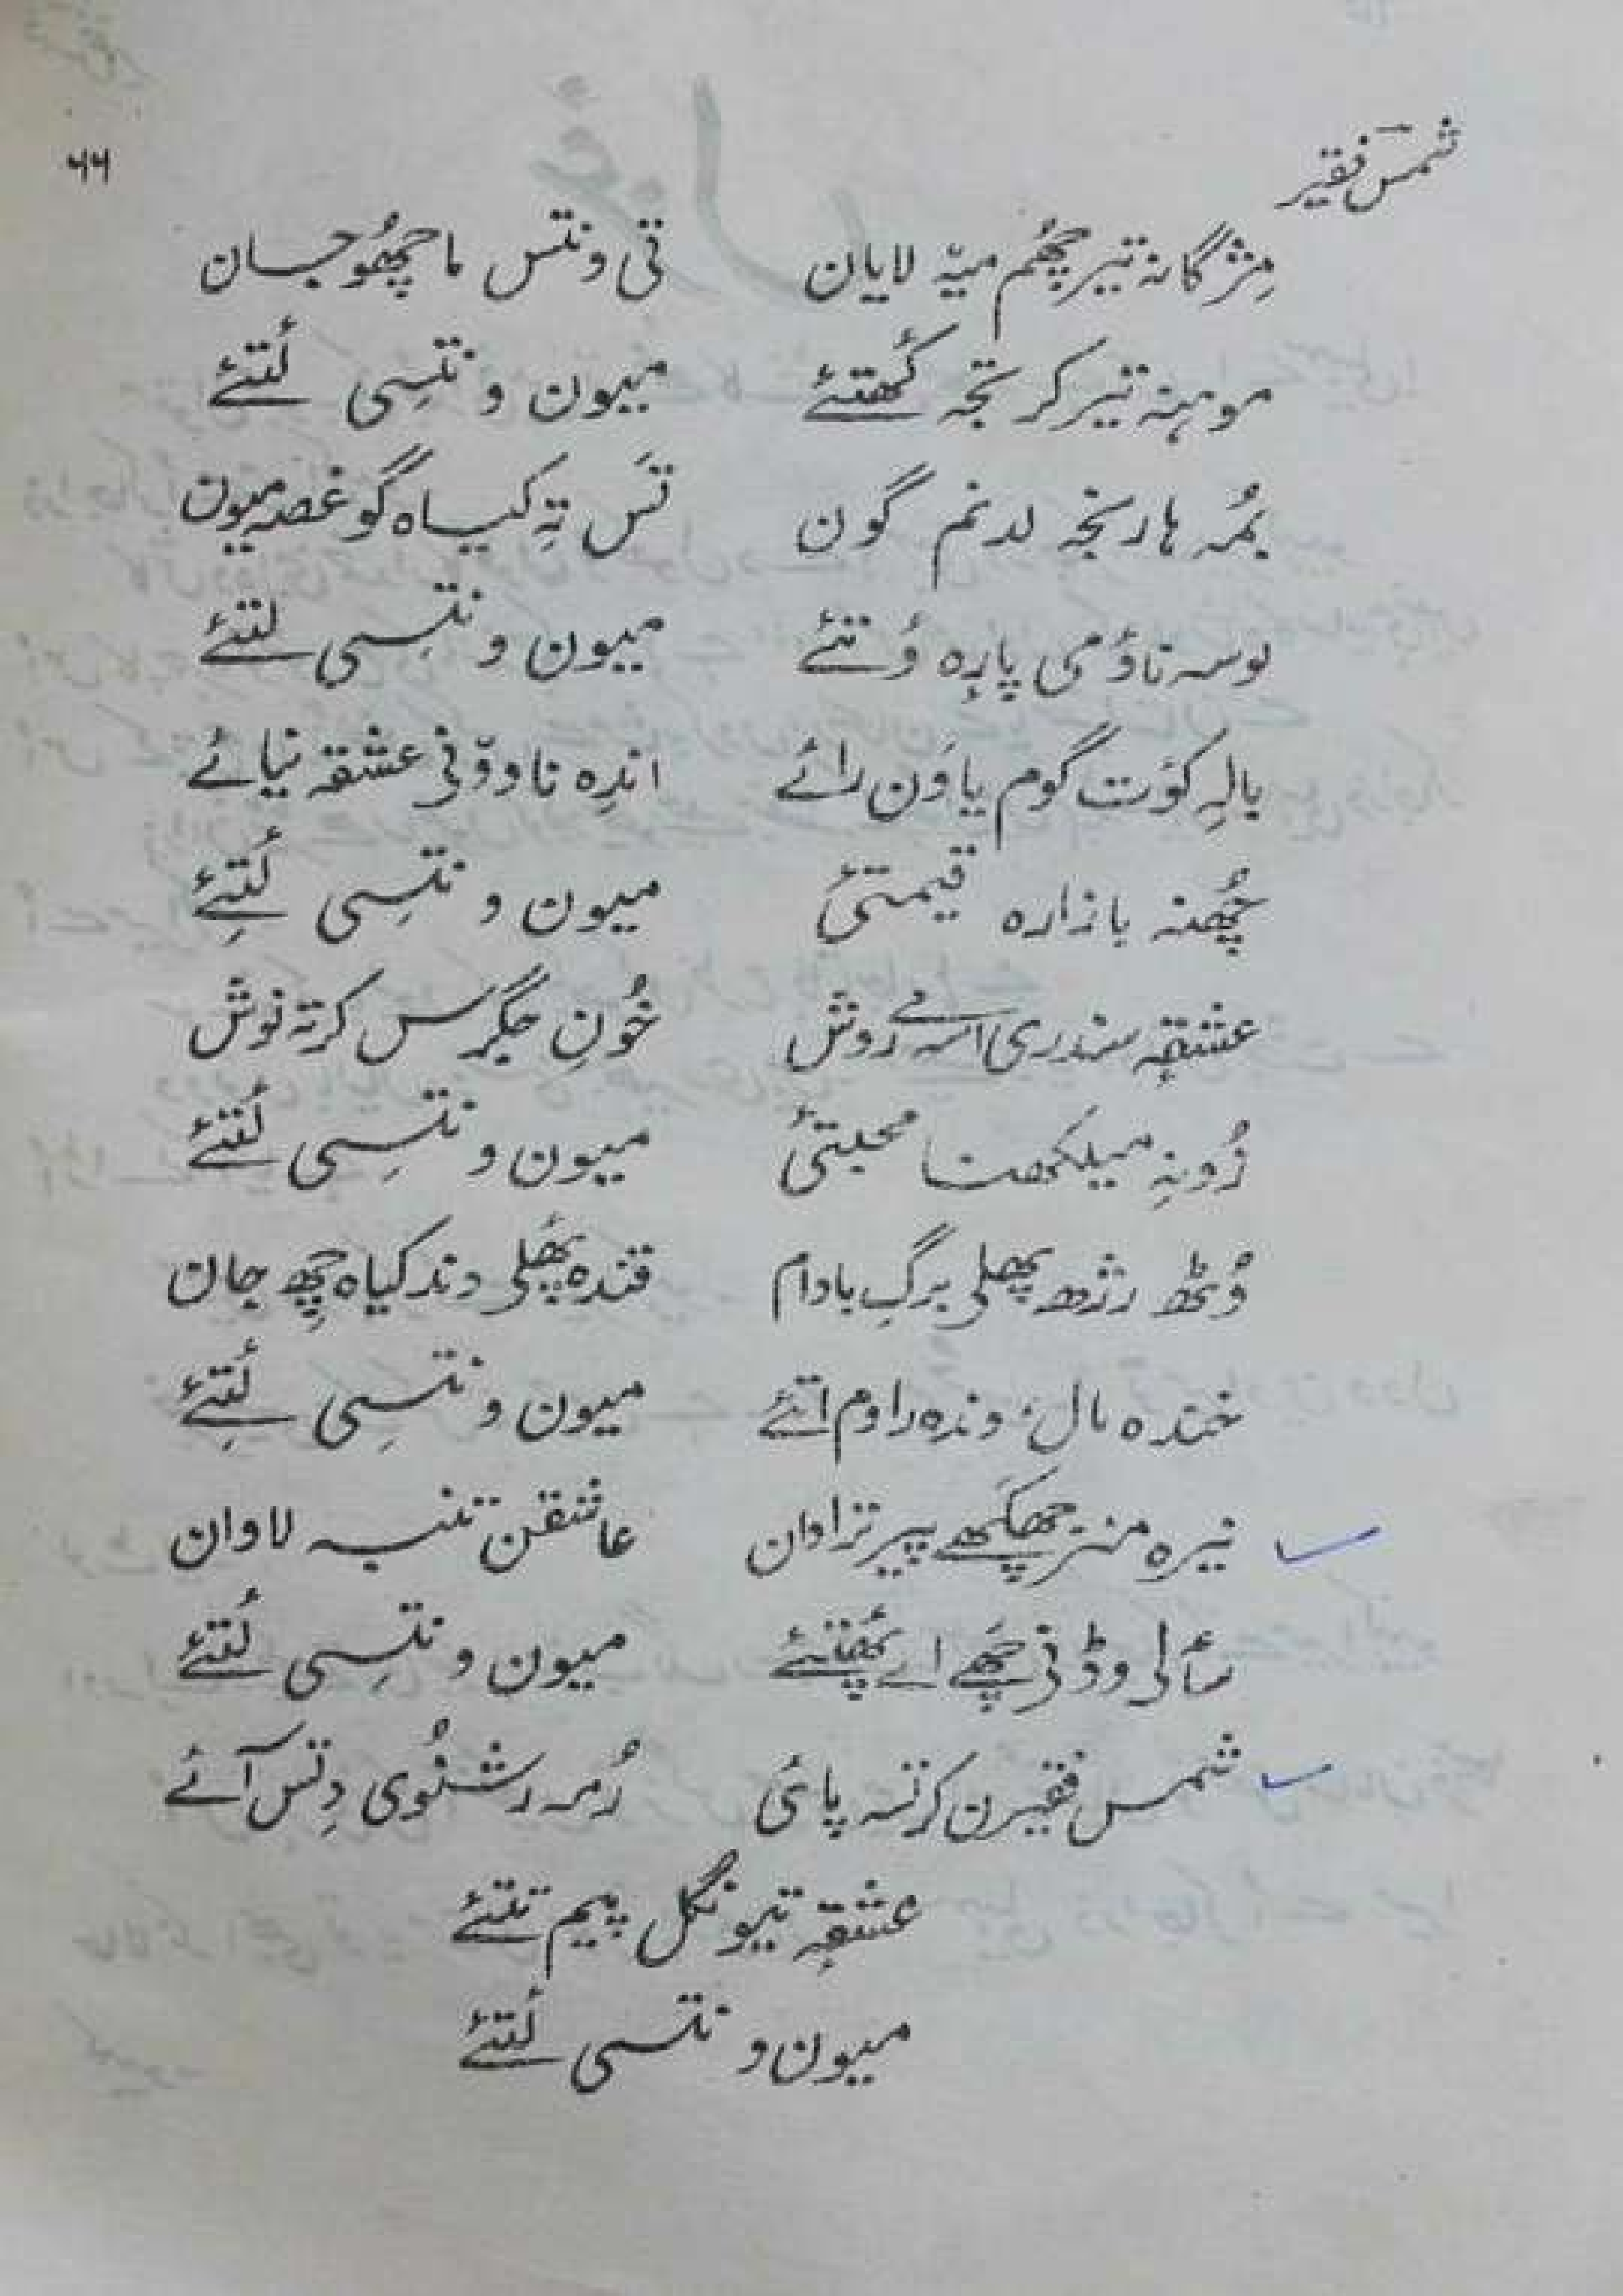 شمس فقیر
۶۶
مژگانہ تیر چھُم میہّ لایان تی ونتس ماچھُو جان
موہنہ تیر کر تجہ گُھتئے میون ونتسِی لُتئے
بُمہ ہا رنجہ لدنم گون تَس تہِ کیاہ گو غصہ میون
لوسہ ناؤمی پارِہ وُتئے میون ونتسِی لتئے
یالہِ کوَت گوم یاوَن رائے اندِہ ناووّنی عشقہ نیائے
چُھنہ بازارہ قیمتیُ میون ونتسِی لُتئِے
عشقہِ سندری اسہ روش خُونِ جگرَس کرتہ نوش
رُونہِ میلکھنا محبتیُ میون ونتسِی لُتئے
وُٹھ رژھ پھلی برگِ بادام قندہ پھُلی دند کیاہ چھِ جان
خندہ مالُ وندہ راوم اتئے میون ونتسِی لُتئِے
نیرہ منز چھکھے پیر تراوان عاشقن تنبہ لاوان
سألی وڈنی چھَے اے پُھتئے میون ونتسِی لُتئے
شمس فقیرن کرنہ پائی رُمہ رشنُوی دِتس آئے
عشقہِ تیونگل پیم تتئے
میون ونتسی لُتئے